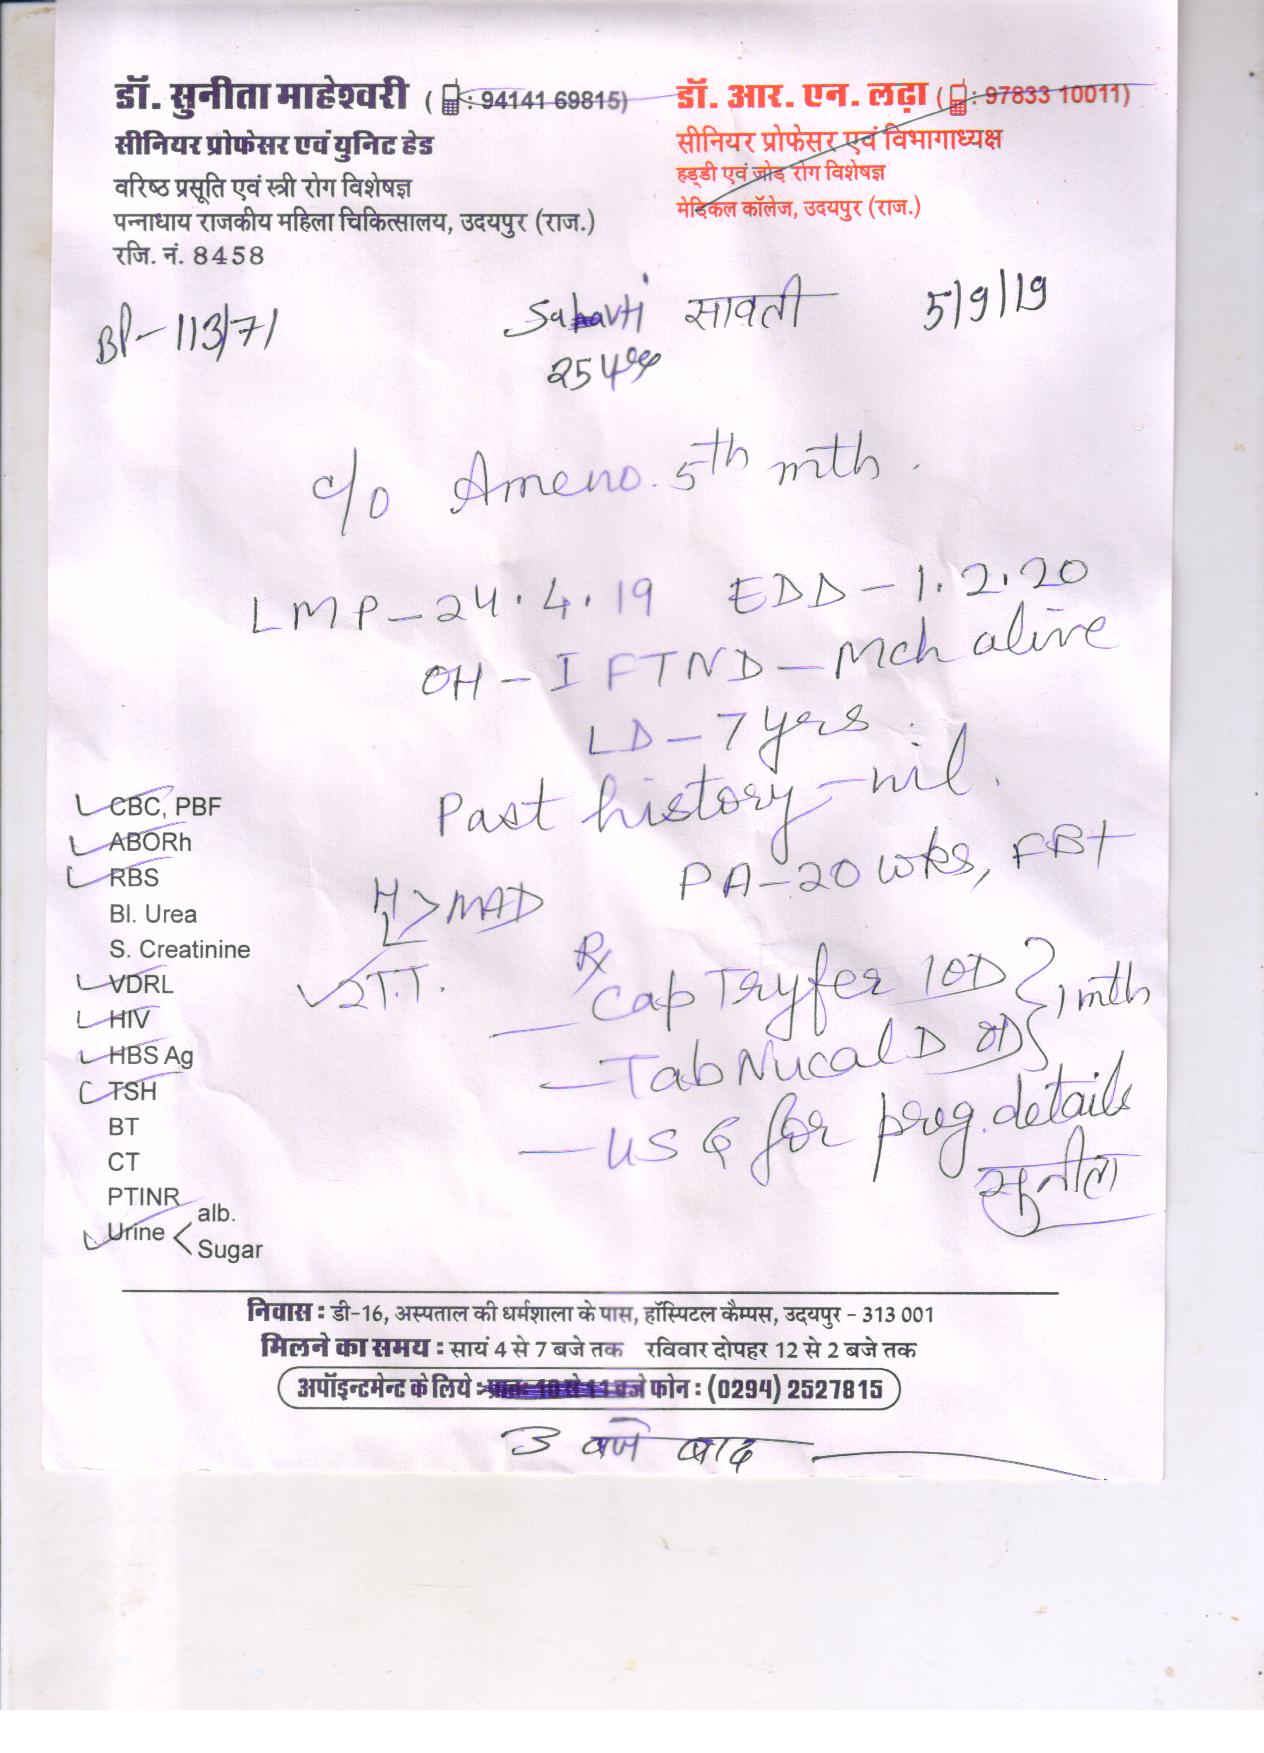 डॉ. सुनीता माहेश्वरी ( : 94141 69815)
सीनियर प्रोफेसर एवं युनिट हेड
वरिष्ठ प्रसूति एवं स्त्री रोग विशेषज्ञ
पन्नाधाय राजकीय महिला चिकित्सालय, उदयपुर (राज.)
रजि. नं. 8458
डॉ. आर. एन. लढ़ा ( : 97833 10011)
सीनियर प्रोफेसर एवं विभागाध्यक्ष
हड्डी एवं जोड़ रोग विशेषज्ञ
मेडिकल कॉलेज, उदयपुर (राज.)
BP- 113/71
सावती 5/9/19
c/o Ameno. 5th mth.
LMP - 24.4.19 EDD - 1.2.20
OH - I FTND - Mch alive
LD - 7 yrs
Past history - nil.
PA - 20 wks, FB+
H L > NAD
2 T.T.
Rx
Cap Tryfer 1OD } 1 mth
- Tab Nucal D OD
- USG for preg. details
सुनीता
CBC, PBF
ABORh
RBS
Bl. Urea
S. Creatinine
VDRL
HIV
HBS Ag
TSH
BT
CT
PTINR
Urine < alb.
Sugar
निवास : डी-16, अस्पताल की धर्मशाला के पास, हॉस्पिटल कैम्पस, उदयपुर - 313 001
मिलने का समय : सायं 4 से 7 बजे तक रविवार दोपहर 12 से 2 बजे तक
अपॉइन्टमेन्ट के लिये : प्रातः 10 से 11 बजे फोन : (0294) 2527815
3 बजे बाद